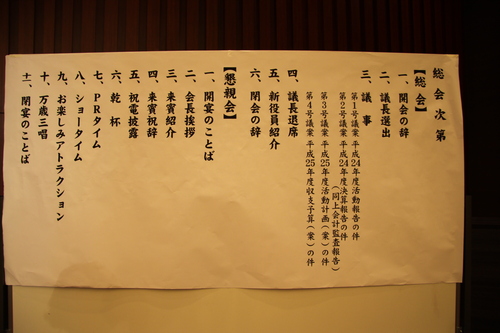 総会次第
【総会】
一、開会の辞
二、議長選出
三、議事
第1号議案 平成24年度活動報告の件
第2号議案 平成24年度決算報告の件
(同上会計監査報告)
第3号議案 平成25年度活動計画(案)の件
第4号議案 平成25年度収支予算(案)の件
四、議長退席
五、新役員紹介
六、閉会の辞
【懇親会】
一、開宴のことば
二、会長挨拶
三、来賓紹介
四、来賓祝辞
五、祝電披露
六、乾杯
七、PRタイム
八、ショータイム
九、お楽しみアトラクション
十、万歳三唱
十一、閉宴のことば